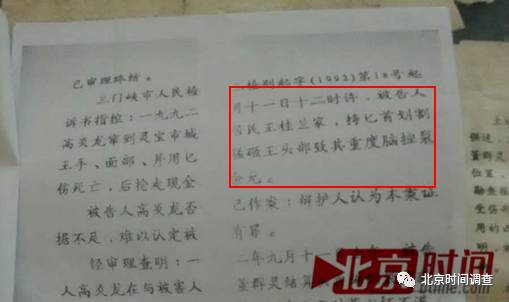 已审理终结。
三门峡市人民检
诉书指控：一九九二
高炎龙窜到灵宝市城
王手、面部、并用匕
伤死亡，后抢走现金
被告人高炎龙否
据不足，难以认定被
经审理查明：一
人高炎龙在与被害人
检刑起字(1992)第18号起
月十一日十二时许，被告人
居民王桂兰家，持匕首划割
砸王头部致其重度脑挫裂
余元。
己作案；辩护人认为本案证
有罪。
二年九月十一
北京时间
btime.com
北京时间调查